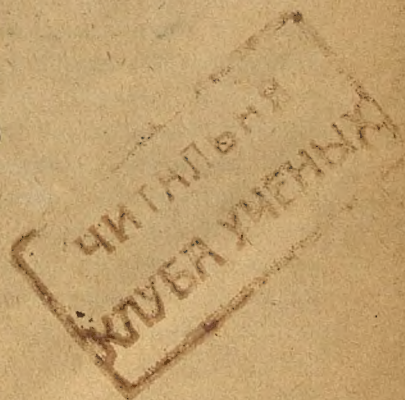 ЧИТАЛЬНЯ
КЛУБА УЧЕНЫХ